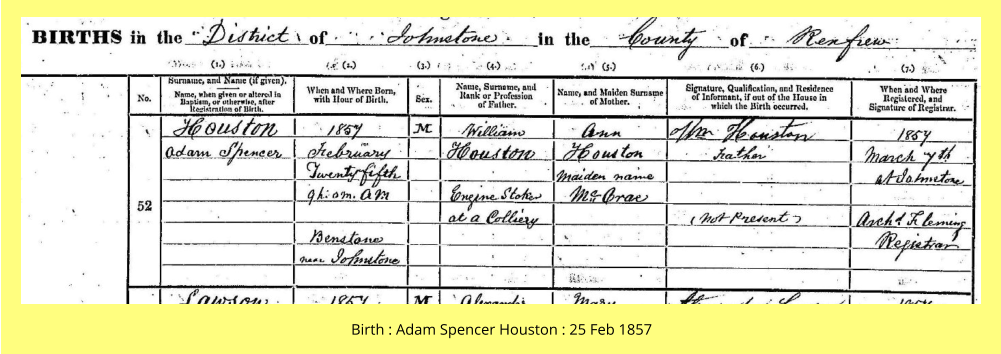 BIRTHS in the District of Johnstone in the County of Renfrew
(1.) (2.) (3.) (4.) (5.) (6.) (7.)
No.
Surname, and Name (if given).
Name, when given or altered in
Baptism, or otherwise, after
Registration of Birth.
When and Where Born,
with Hour of Birth.
Sex.
Name, Surname, and
Rank or Profession
of Father.
Name, and Maiden Surname
of Mother.
Signature, Qualification, and Residence
of Informant, if out of the House in
which the Birth occurred.
When and Where
Registered, and
Signature of Registrar.
52
Houston
Adam Spencer
1857
February
Twenty fifth
9h. 0m. AM
Benstone
near Johnstone
M
William
Houston
Engine Stoker
at a Colliery
Ann
Houston
Maiden name
McCrae
Wm Houston
Father
(Not Present)
1857
March 7th
at Johnstone
Archd Fleming
Registrar
Lawson 1857 M
Birth : Adam Spencer Houston : 25 Feb 1857